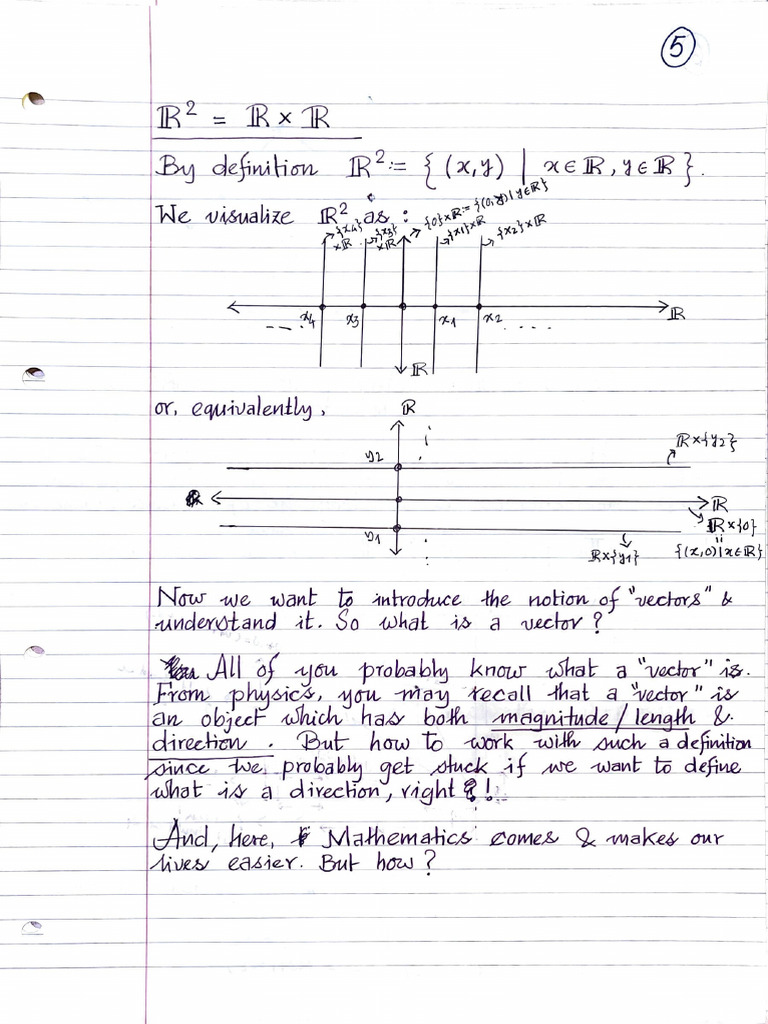 5
ℝ² = ℝ × ℝ
By definition ℝ² := { (x,y) | x ∈ ℝ, y ∈ ℝ }.
We visualize ℝ² as :
{x4} × ℝ {x3} × ℝ {0} × ℝ := {(0,y) | y ∈ ℝ} {x1} × ℝ {x2} × ℝ
x4 x3 x1 x2 ℝ
---- ....
ℝ
or, equivalently, ℝ
y2 ℝ × {y2}
ℝ
y1 ℝ × {0}
ℝ × {y1} {(x,0) | x ∈ ℝ}
Now we want to introduce the notion of "vectors" &
understand it. So what is a vector?
All of you probably know what a "vector" is.
From physics, you may recall that a "vector" is
an object which has both magnitude / length &
direction. But how to work with such a definition
since we probably get stuck if we want to define
what is a direction, right?!
And, here, Mathematics comes & makes our
lives easier. But how?